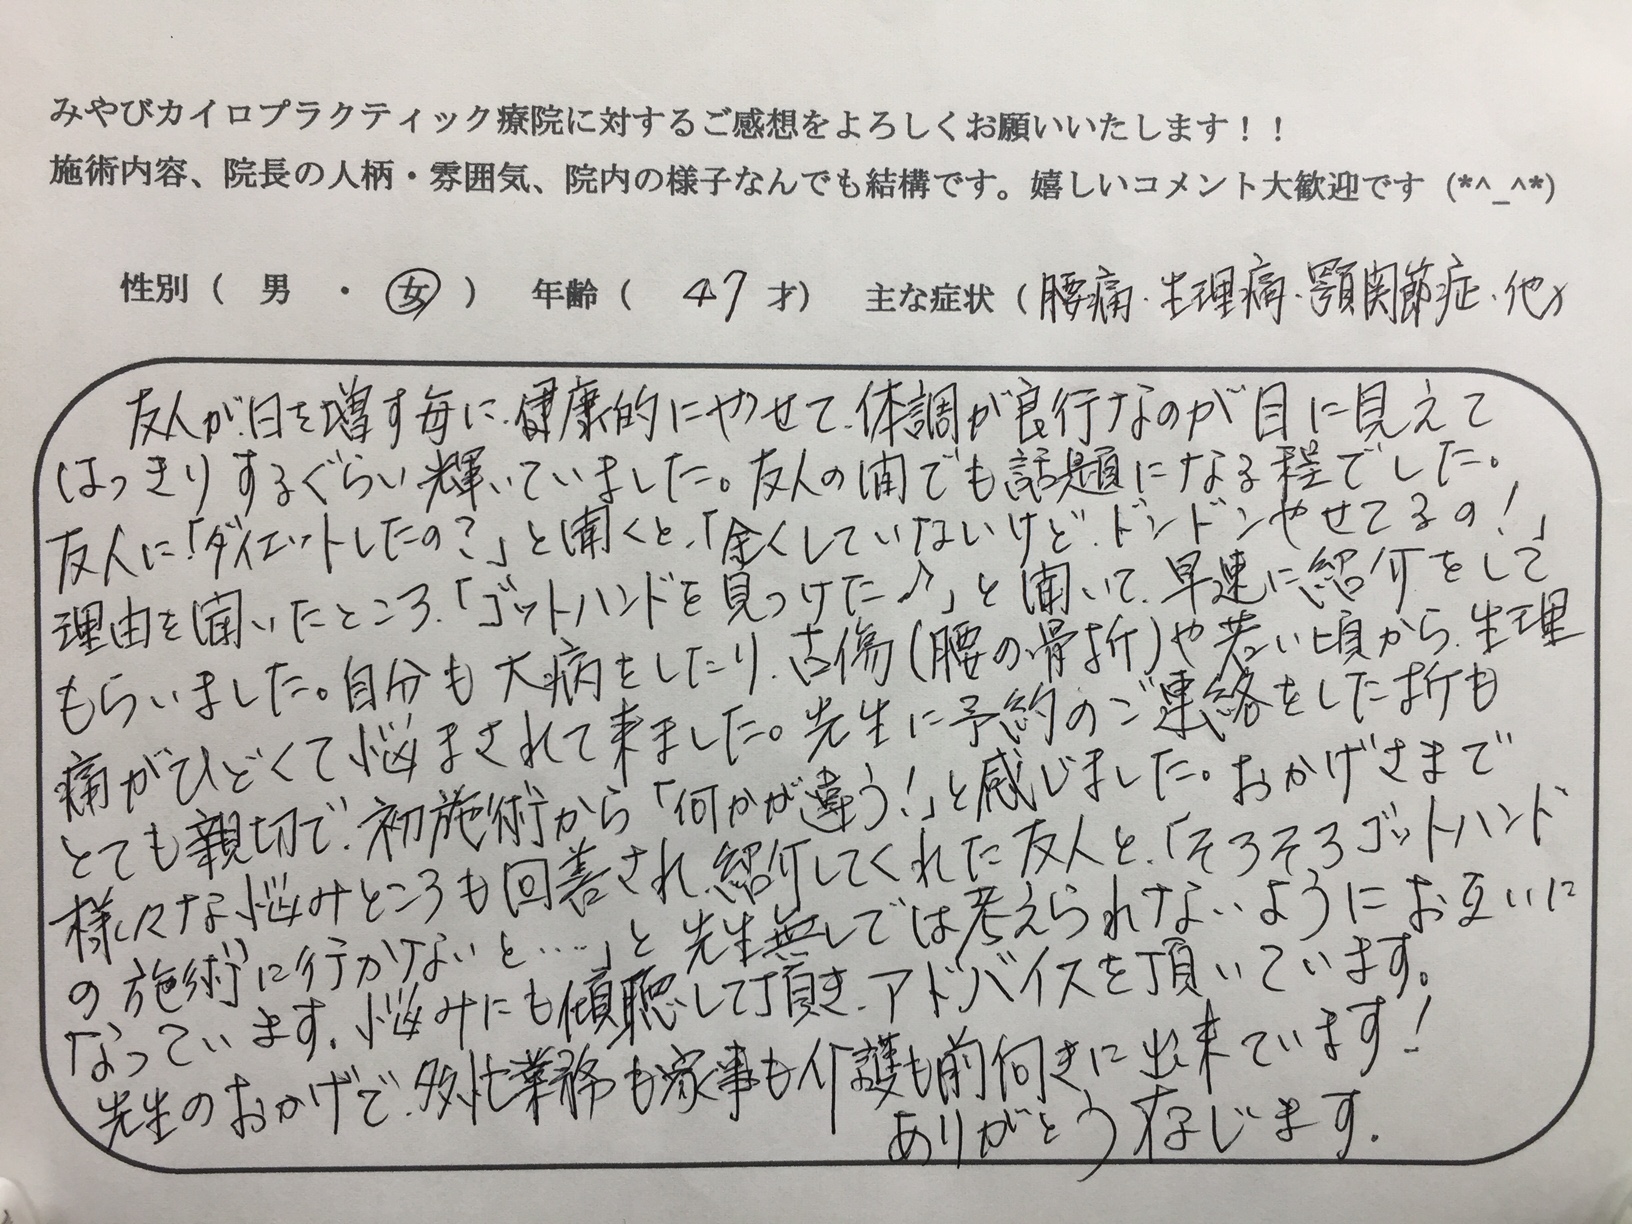 みやびカイロプラクティック療院に対するご感想をよろしくお願いいたします！！
施術内容、院長の人柄・雰囲気、院内の様子なんでも結構です。嬉しいコメント大歓迎です (*^_^*)
性別（ 男 ・ 女 ） 年齢（ 47 才） 主な症状（腰痛・生理痛・顎関節症・他）
友人が、日を増す毎に、健康的にやせて、体調が良行なのが目に見えて
はっきりするぐらい輝いていました。友人の間でも話題になる程でした。
友人に「ダイエットしたの？」と聞くと、「全くしていないけど、ドンドンやせてるの！」
理由を聞いたところ、「ゴットハンドを見つけた♪」と聞いて、早速に紹介をして
もらいました。自分も大病をしたり、古傷（腰の骨折）や若い頃から、生理
痛がひどくて悩まされて来ました。先生に予約のご連絡をした折も
とても親切で、初施術から「何かが違う！」と感じました。おかげさまで
様々な悩みどころも回善され、紹介してくれた友人と、「そろそろゴットハンド
の施術に行かないと……」と先生無しでは考えられないようにお互いに
なっています。悩みにも傾聴して頂き、アドバイスを頂いています。
先生のおかげで、多忙業務も家事も介護も前向きに出来ています！
ありがとう存じます。